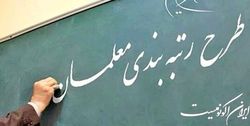 طرح رتبه بندی معلمان
ایران اکونومیست